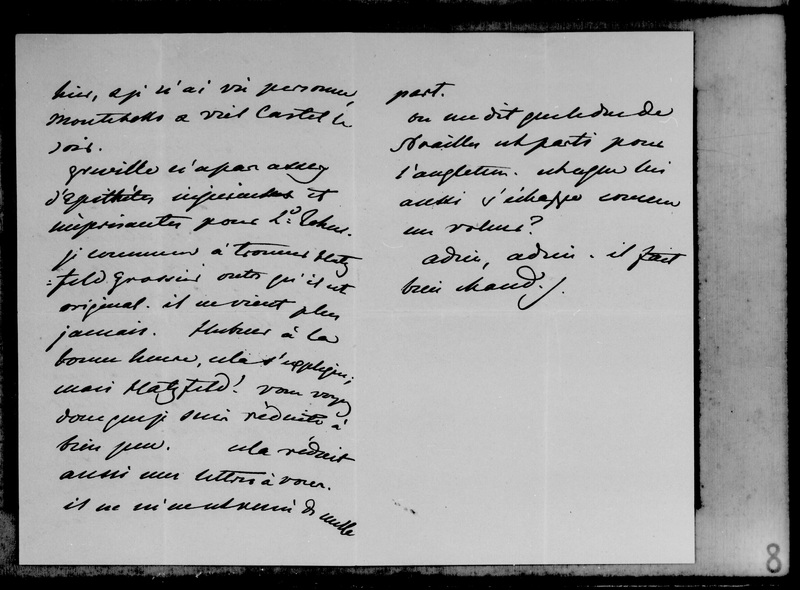 hier, & je n'ai vu personne,
Montebello a vieil Castel le
soir.
greville n'a pas assez
d'Epithètes injurieuses et
méprisantes pour Ld
je commence à trouver Hatz
=feld grossier outre qu'il est
original. il ne vient plus
jamais. Hubner à la
bonne heure, cela s'explique;
mais Hatzfeld! vous voyez
donc que je suis réduite à
bien peu. cela réduit
aussi mes lettres à vous.
il ne m'en est venu de nulle
part.
on me dit que le duc de
Noailles est parti pour
l'angleterre. est-ce que lui
aussi s'échappe comme
un voleur?
adieu, adieu. il fait
bien chaud./.
8